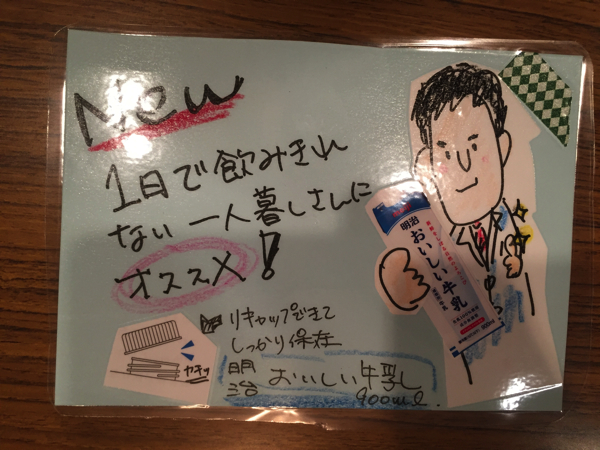 New
1日で飲みきれ
ない一人暮しさんに
オススメ!
リキャップできて
しっかり保在
明治 おいしい牛乳
900ml.
ヤキッ
明治
おいしい牛乳